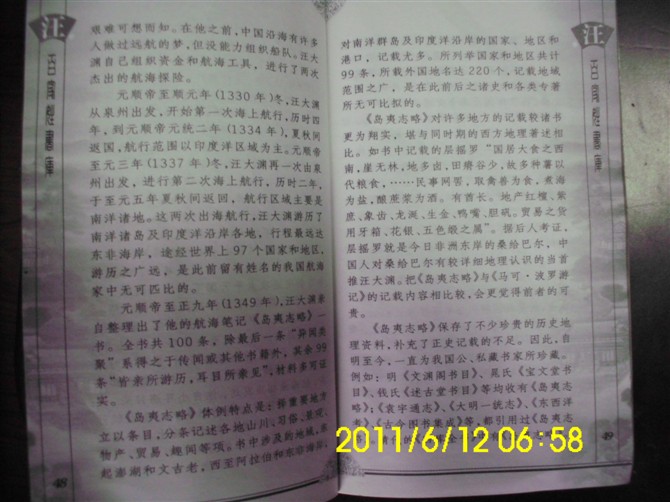 汪
艰难可想而知。在他之前,中国沿海有许多
人做过远航的梦,但没能力组织船队。汪大
渊自己组织资金和航海工具,进行了两次
杰出的航海探险。
元顺帝至顺元年(1330 年)冬,汪大渊
从泉州出发,开始第一次海上航行,历时四
年,到元顺帝元统二年(1334 年),夏秋间
返国,航行范围以印度洋区域为主。元顺帝
至元三年(1337 年)冬,汪大渊再一次由泉
州出发,进行第二次海上航行,历时二年,
于至元五年夏秋间返回,航行区域主要是
南洋诸地。这两次出海航行,汪大渊游历了
南洋诸岛及印度洋沿岸各地,行程最远达
东非海岸,途经世界上 97 个国家和地区,
游历之广远,是此前留有姓名的我国航海
家中无可匹比的。
元顺帝至正九年(1349 年),汪大渊亲
自整理出了他的航海笔记《岛夷志略》一
书。全书共 100 条,除最后一条“异闻类
聚”系得之于传闻或其他书籍外,其余 99
条“皆亲所游历,耳目所亲见”,材料多可证
实。
《岛夷志略》体例特点是:择重要地方
立以条目,分条记述各地山川、习俗、景况、
物产、贸易、趣闻等项。书中涉及的地域,东
起澎湖和文古老,西至阿拉伯和东非海岸,
48
汪
对南洋群岛及印度洋沿岸的国家、地区和
港口,记载尤多。所列举国家和地区共计
99 条,所载外国地名达 220 个,记载地域
范围之广,是在此前后之诸史和各类专著
所无可比拟的。
《岛夷志略》对许多地方的记载较诸书
更为翔实,堪与同时期的西方地理著述相
比。如书中记载的层摇罗“国居大食之西
南,崖无林,地多卤,田瘠谷少,故多种薯以
代粮食,……民事网罟,取禽兽为食,煮海
为盐,酿蔗浆为酒。有酋长。地产红檀、紫
蔗、象齿、龙涎、生金、鸭嘴、胆矾。贸易之货
用牙箱、花银、五色缎之属”。据后人考证,
层摇罗就是今日非洲东岸的桑给巴尔,中
国人对桑给巴尔有较详细地理认识的当首
推汪大渊。把《岛夷志略》与《马可·波罗游
记》的记载内容相比较,会更觉得前者的可
贵。
《岛夷志略》保存了不少珍贵的历史地
理资料,补充了正史记载的不足。因此,自
明至今,一直为我国公、私藏书家所珍藏。
例如:明《文渊阁书目》、晁氏《宝文堂书
目》、钱氏《述古堂书目》等均收有《岛夷志
略》;《寰宇通志》、《大明一统志》、《东西洋
考》、《古今图书集成》等,都引用过《岛夷志
49
2011/6/12 06:58